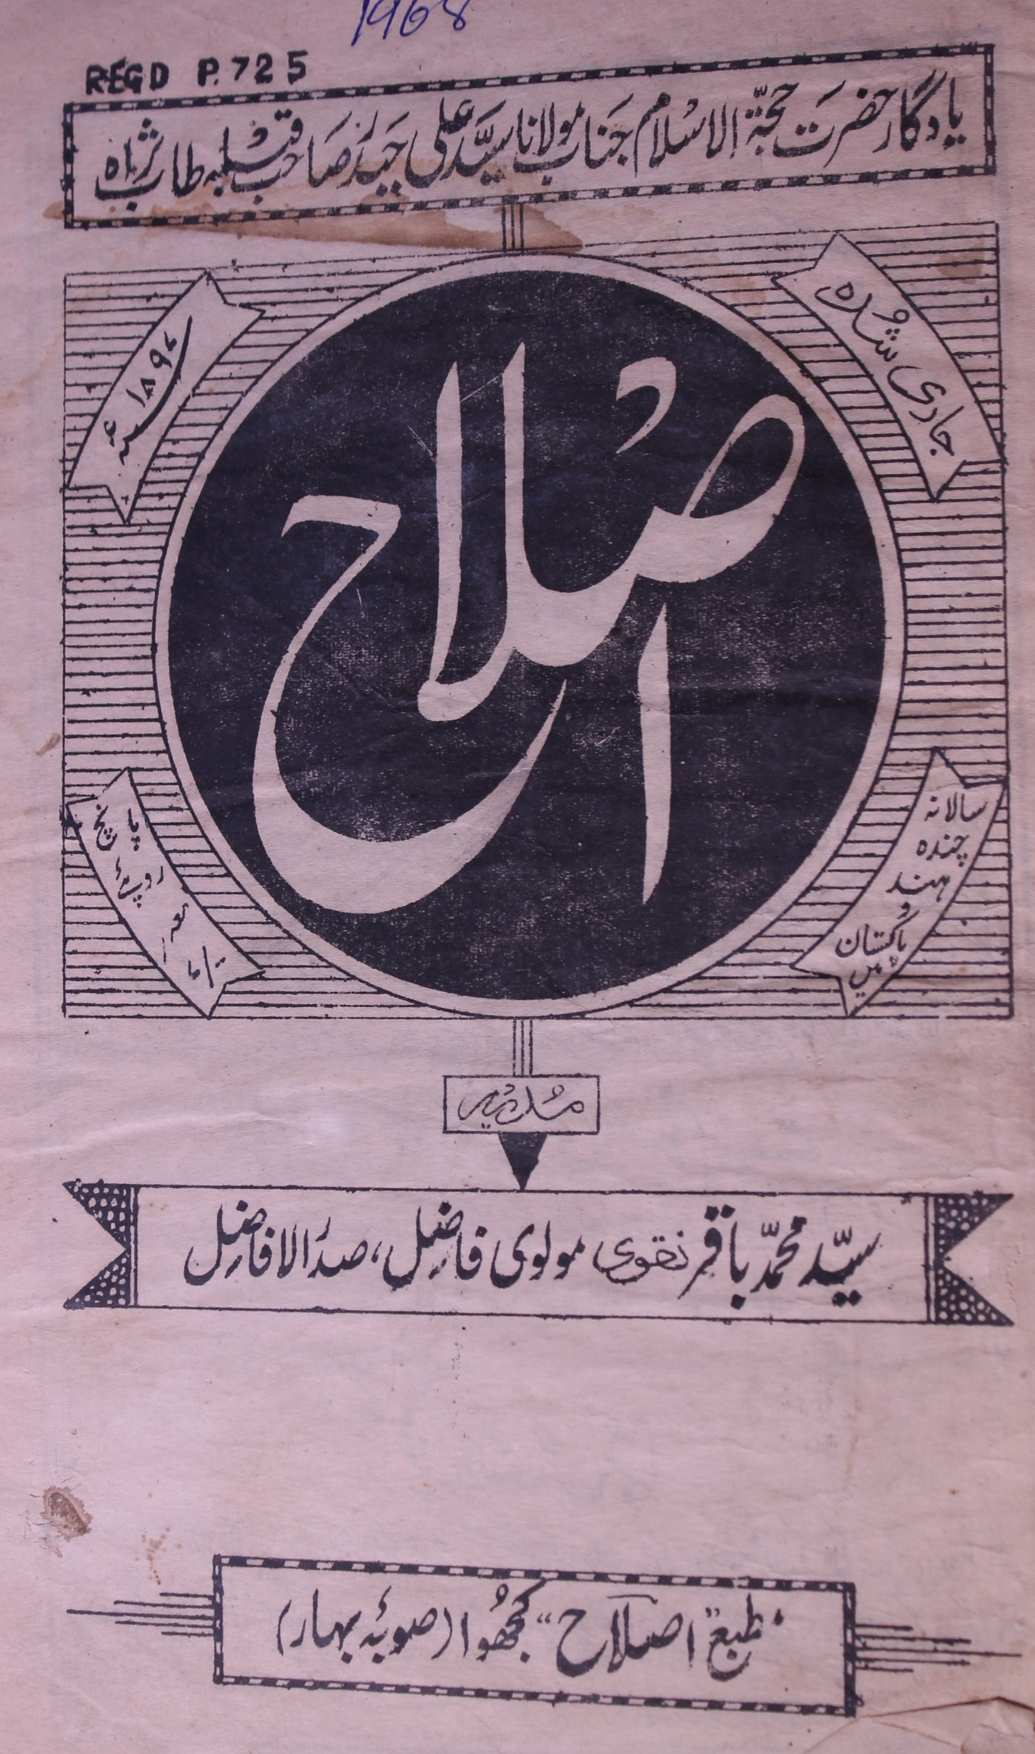 1968
REGD P. 725
یادگار حضرت حجۃ الاسلام جناب مولانا سید علی حیدر صاحب قبلہ طاب ثراہ
جاری شدہ
۱۸۹۷ء
اصلاح
سالانہ
چندہ
ہند
و
پاکستان
میں
پانچ
روپئے
مدیر
سیّد محمّد باقر نقوی مولوی فاضل، صدر الافاضل
مطبع "اصلاح" کجھوا (صوبۂ بہار)